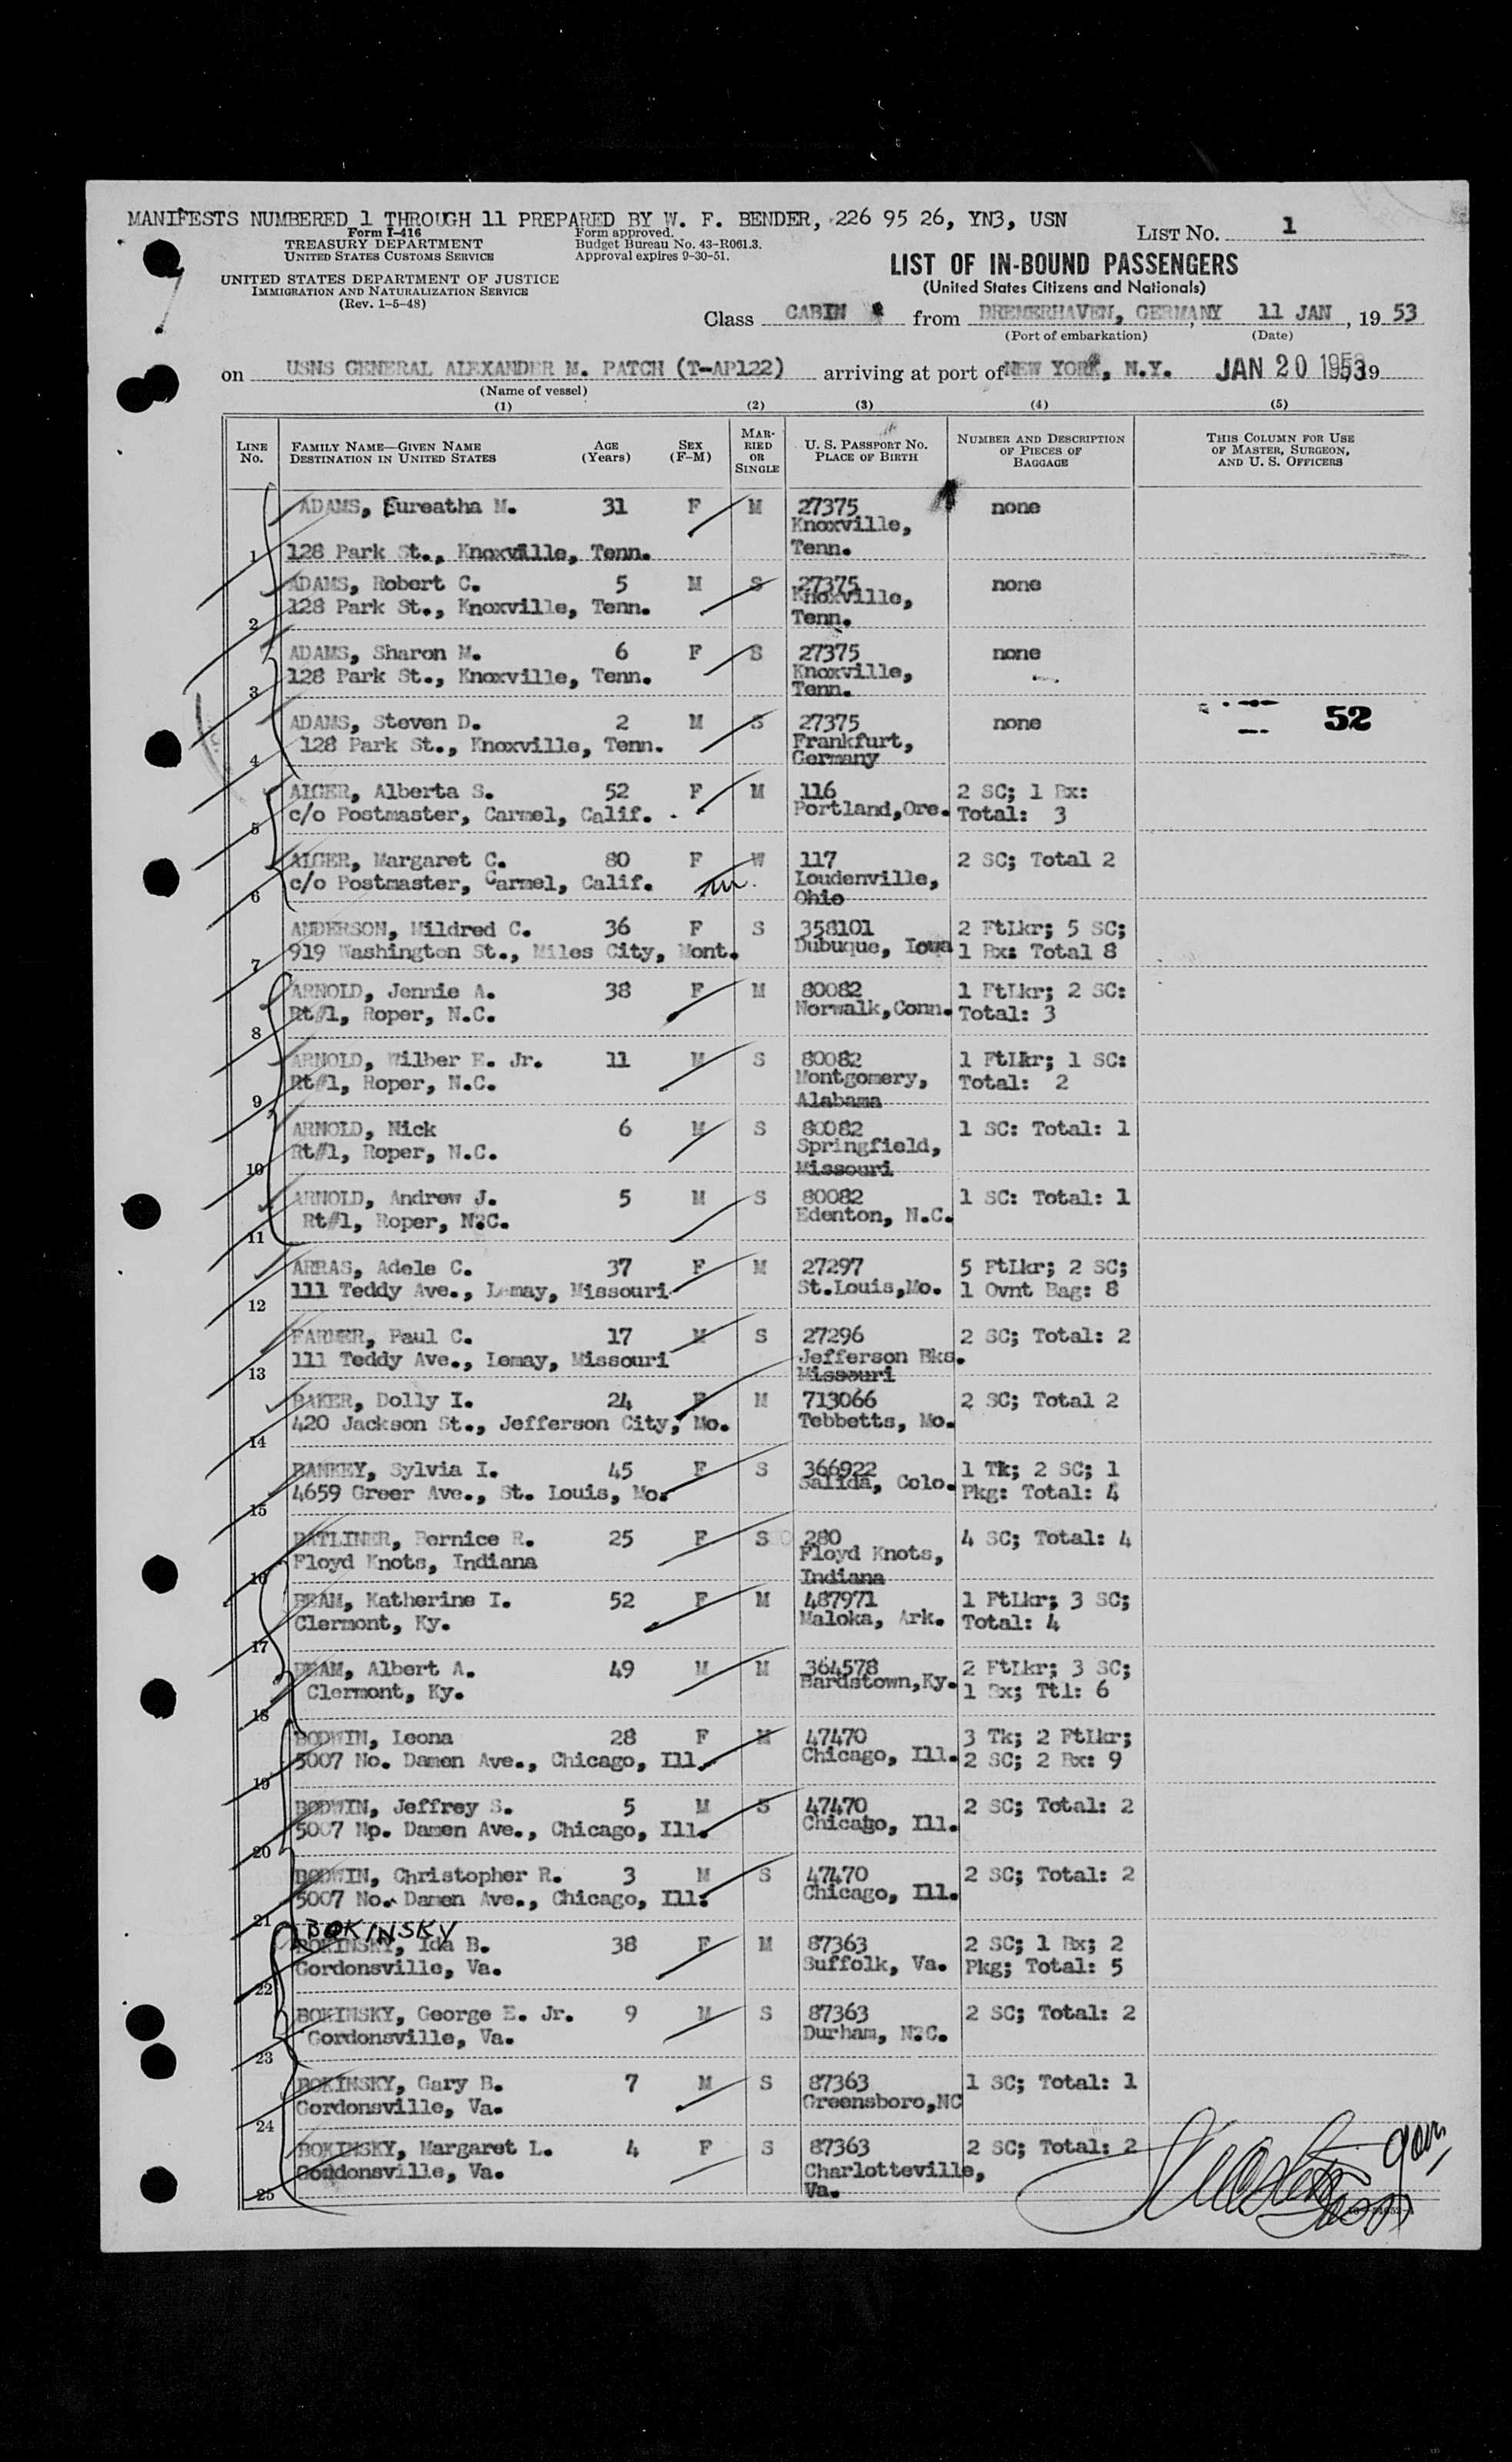 MANIFESTS NUMBERED 1 THROUGH 11 PREPARED BY W. F. BENDER, 226 95 26, YN3, USN
Form I-416
TREASURY DEPARTMENT
UNITED STATES CUSTOMS SERVICE
Form approved.
Budget Bureau No. 43-R061.3.
Approval expires 9-30-51.
LIST NO. 1
UNITED STATES DEPARTMENT OF JUSTICE
IMMIGRATION AND NATURALIZATION SERVICE
(Rev. 1-5-48)
LIST OF IN-BOUND PASSENGERS
(United States Citizens and Nationals)
Class CABIN from BREMERHAVEN, GERMANY, 11 JAN, 19 53
(Port of embarkation) (Date)
on USNS GENERAL ALEXANDER M. PATCH (T-AP122) arriving at port of NEW YORK, N.Y. JAN 20 1953, 19
(Name of vessel)
(1) (2) (3) (4) (5)
LINE NO. FAMILY NAME—GIVEN NAME DESTINATION IN UNITED STATES AGE (Years) SEX (F-M) MARRIED OR SINGLE U. S. PASSPORT NO. PLACE OF BIRTH NUMBER AND DESCRIPTION OF PIECES OF BAGGAGE THIS COLUMN FOR USE OF MASTER, SURGEON, AND U. S. OFFICERS
ADAMS, Eureatha M. 31 F M 27375 none
Knoxville,
1 128 Park St., Knoxville, Tenn. Tenn.
ADAMS, Robert C. 5 M S 27375 none
2 128 Park St., Knoxville, Tenn. Knoxville,
Tenn.
ADAMS, Sharon M. 6 F S 27375 none
3 128 Park St., Knoxville, Tenn. Knoxville,
Tenn.
ADAMS, Steven D. 2 M S 27375 none 52
4 128 Park St., Knoxville, Tenn. Frankfurt,
Germany
AIGER, Alberta S. 52 F M 116 2 SC; 1 Bx:
5 c/o Postmaster, Carmel, Calif. Portland,Ore. Total: 3
AIGER, Margaret C. 80 F W 117 2 SC; Total 2
6 c/o Postmaster, Carmel, Calif. Loudenville,
Ohio
ANDERSON, Mildred C. 36 F S 358101 2 FtLkr; 5 SC;
7 919 Washington St., Miles City, Mont. Dubuque, Iowa 1 Bx: Total 8
ARNOLD, Jennie A. 38 F M 80082 1 FtLkr; 2 SC:
8 Rt#1, Roper, N.C. Norwalk,Conn. Total: 3
ARNOLD, Wilber E. Jr. 11 M S 80082 1 FtLkr; 1 SC:
9 Rt#1, Roper, N.C. Montgomery, Total: 2
Alabama
ARNOLD, Nick 6 M S 80082 1 SC: Total: 1
10 Rt#1, Roper, N.C. Springfield,
Missouri
ARNOLD, Andrew J. 5 M S 80082 1 SC: Total: 1
11 Rt#1, Roper, N.C. Edenton, N.C.
ARRAS, Adele C. 37 F M 27297 5 FtLkr; 2 SC;
12 111 Teddy Ave., Lemay, Missouri St.Louis,Mo. 1 Ovnt Bag: 8
FARMER, Paul C. 17 M S 27296 2 SC; Total: 2
13 111 Teddy Ave., Lemay, Missouri Jefferson Bks.
Missouri
BAKER, Dolly I. 24 F M 713066 2 SC; Total 2
14 420 Jackson St., Jefferson City, Mo. Tebbetts, Mo.
BANKEY, Sylvia I. 45 F S 366922 1 Tk; 2 SC; 1
15 4659 Greer Ave., St. Louis, Mo. Salida, Colo. Pkg: Total: 4
BATLINER, Bernice R. 25 F S 280 4 SC; Total: 4
16 Floyd Knots, Indiana Floyd Knots,
Indiana
BEAM, Katherine I. 52 F M 487971 1 FtLkr; 3 SC;
17 Clermont, Ky. Maloka, Ark. Total: 4
BEAM, Albert A. 49 M M 364578 2 FtLkr; 3 SC;
18 Clermont, Ky. Bardstown,Ky. 1 Bx; Ttl: 6
BODWIN, Leona 28 F M 47470 3 Tk; 2 FtLkr;
19 5007 No. Damen Ave., Chicago, Ill. Chicago, Ill. 2 SC; 2 Bx: 9
BODWIN, Jeffrey S. 5 M S 47470 2 SC; Total: 2
20 5007 Np. Damen Ave., Chicago, Ill. Chicago, Ill.
BODWIN, Christopher R. 3 M S 47470 2 SC; Total: 2
21 5007 No. Damen Ave., Chicago, Ill. Chicago, Ill.
BOKINSKY
BOKINSKY, Ida B. 38 F M 87363 2 SC; 1 Bx; 2
22 Gordonsville, Va. Suffolk, Va. Pkg; Total: 5
BOKINSKY, George E. Jr. 9 M S 87363 2 SC; Total: 2
23 Gordonsville, Va. Durham, N.C.
BOKINSKY, Gary B. 7 M S 87363 1 SC; Total: 1
24 Gordonsville, Va. Greensboro,NC
BOKINSKY, Margaret L. 4 F S 87363 2 SC; Total: 2
25 Gordonsville, Va. Charlotteville,
Va.